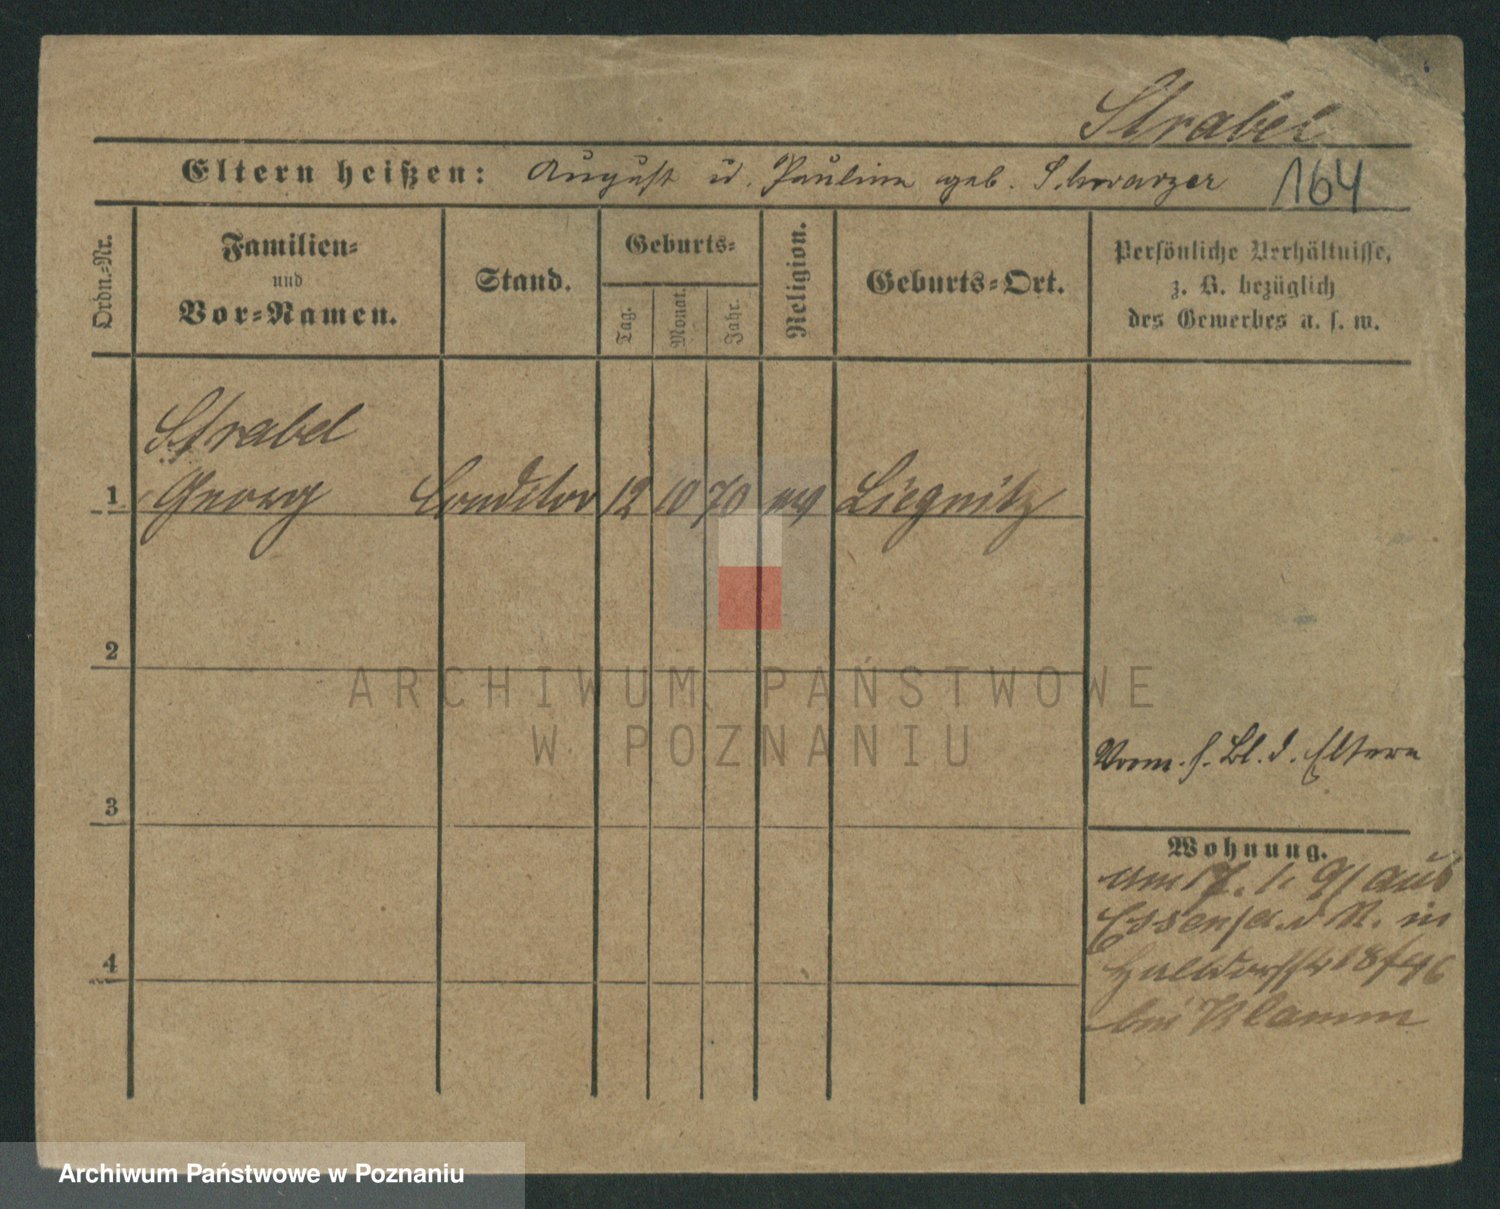 Strabel
Eltern heißen: August u. Pauline geb. Schwarzer 164
Ordn.-Nr.
Familien-
und
Vor-Namen.
Stand.
Geburts-
Tag.
Monat.
Jahr.
Religion.
Geburts-Ort.
Persönliche Verhältnisse,
z. B. bezüglich
des Gewerbes u. s. w.
Strabel
1 Georg Conditor 12 10 70 Liegnitz
2
3
4
Vorm. s. Bl. d. Eltern
Wohnung.
am 17. 1. 91 aus
Essen a. d. R. in
bei Klamm
ARCHIWUM PAŃSTWOWE
W POZNANIU
Archiwum Państwowe w Poznaniu